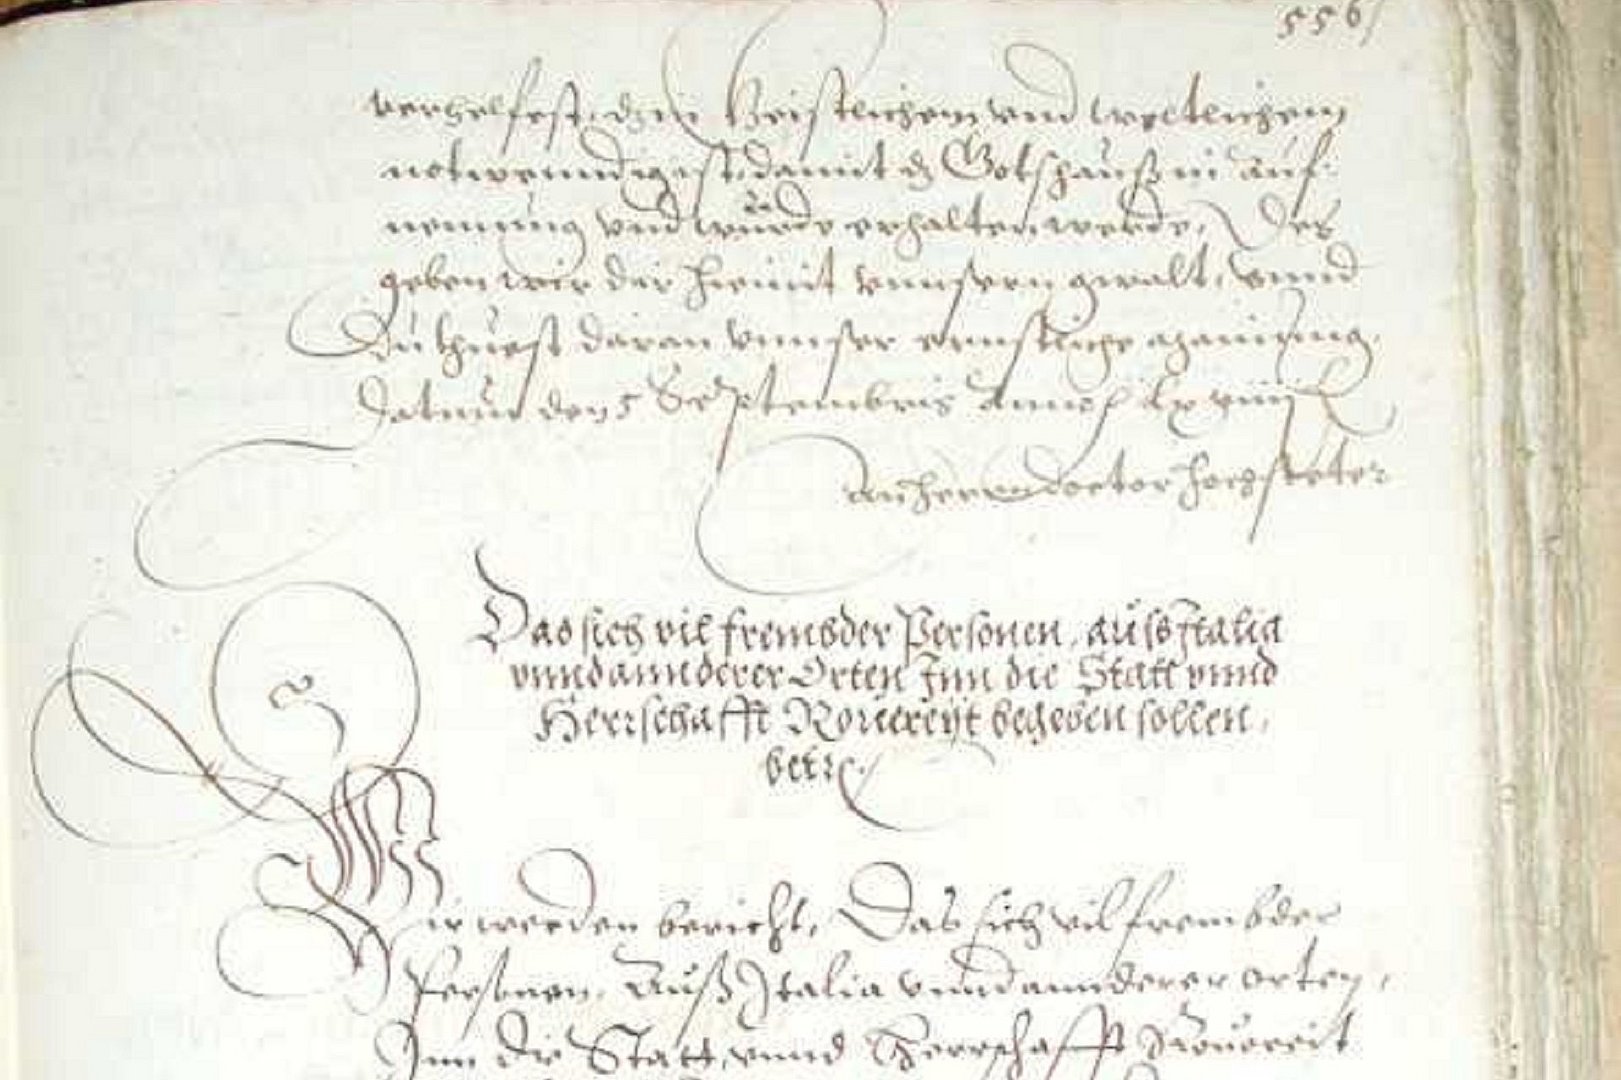 556
verhelfest, den Geistlichem und weltlichem
notwenndigist, damit dz Gotshauß in auf-
nemung und würde erhalten werde, Des
geben wir dir hiemit unnsern gwalt, Unnd
Du thuest daran unnser ernstliche mainung.
Datum den 5 Septembris Anno lxviiij
An herrn doctor hochsteter
Das sich vil frembder Personen, auss Italia
unnd annderer Orten Inn die Statt unnd
Herrschafft Rovereyt begeben sollen,
Wir werden bericht, Das sich vil frembder
Personen, Auß Italia unnd annderer orten,
Inn die Statt, unnd Herrschafft Rovereit